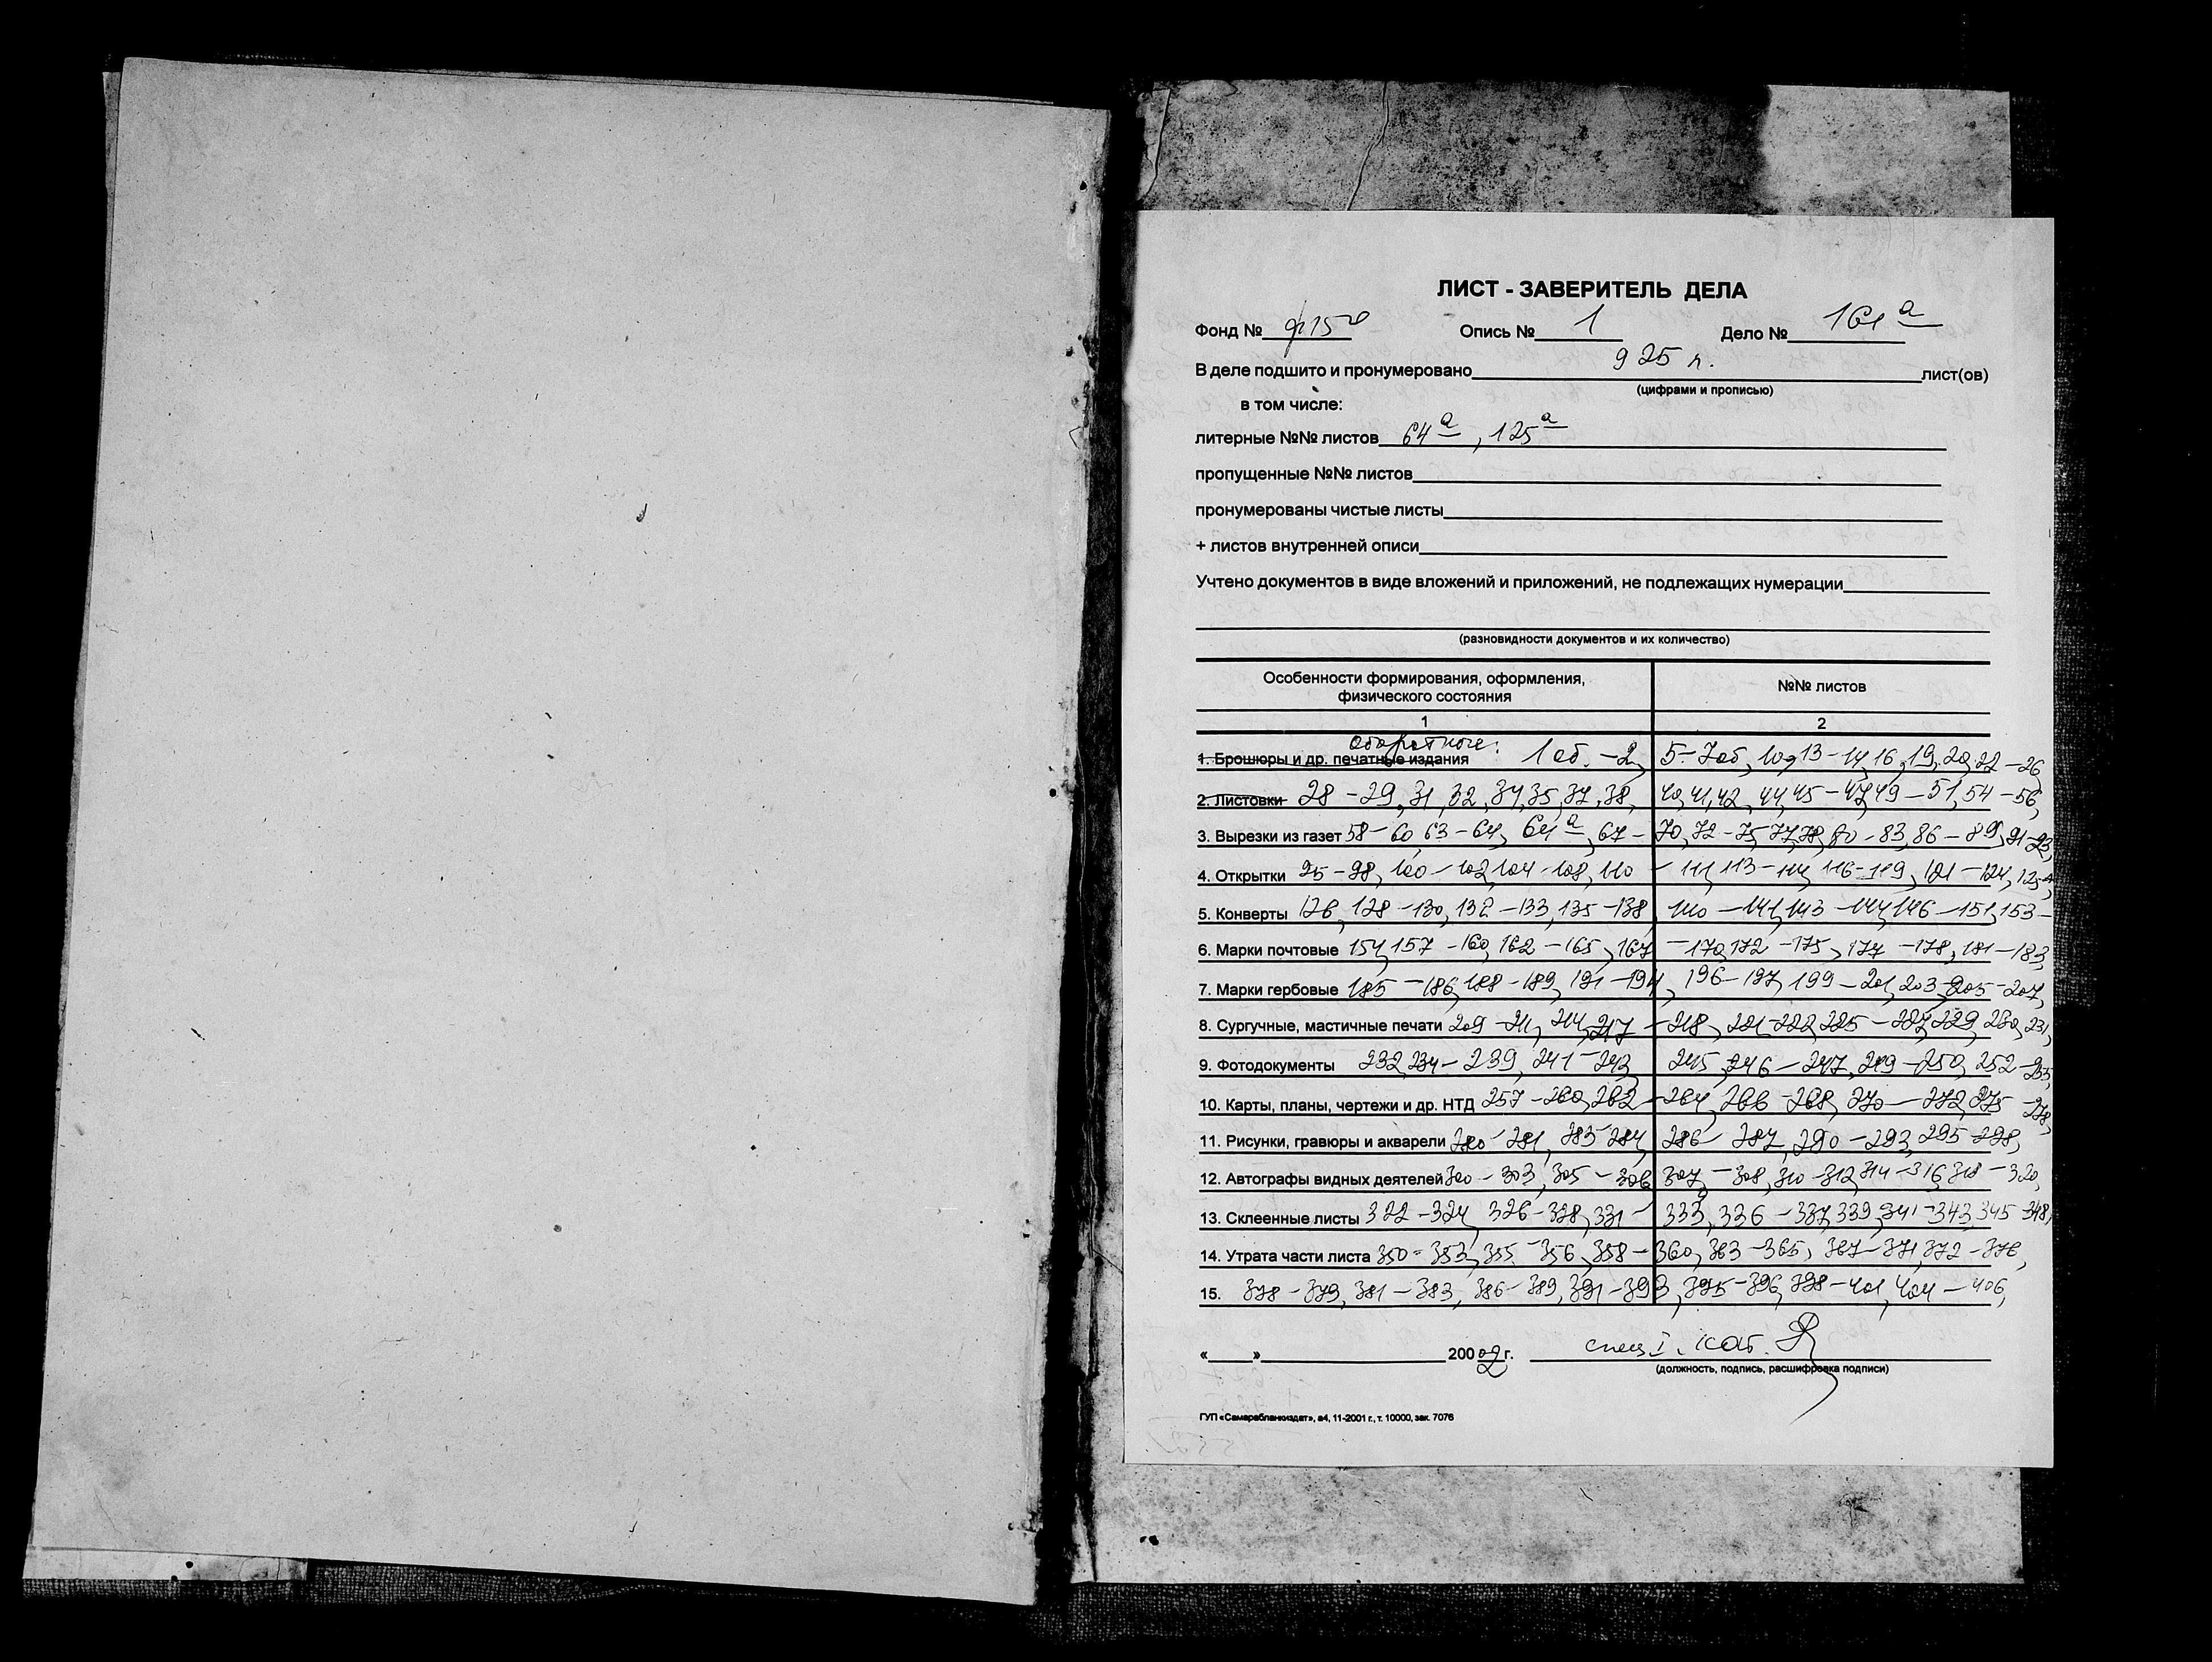 ЛИСТ - ЗАВЕРИТЕЛЬ ДЕЛА
Фонд № Опись № 1 Дело № 161 а
В деле подшито и пронумеровано 925 л. лист(ов)
(цифрами и прописью)
в том числе:
литерные №№ листов 64 а, 125 а
пропущенные №№ листов
пронумерованы чистые листы
+ листов внутренней описи
Учтено документов в виде вложений и приложений, не подлежащих нумерации
(разновидности документов и их количество)
Особенности формирования, оформления, физического состояния №№ листов
1 2
оборотные:
1. Брошюры и др. печатные издания 1 об. - 2, 5 - 7 об, 10, 13 - 14, 16, 19, 20, 22 - 26,
2. Листовки 28 - 29, 31, 32, 34, 35, 37, 38, 40, 41, 42, 44, 45 - 47, 49 - 51, 54 - 56,
3. Вырезки из газет 58 - 60, 63 - 64, 64 а, 67 - 70, 72 - 75, 77, 78, 80 - 83, 86 - 89, 91 - 93,
4. Открытки 95 - 98, 100 - 102, 104 - 108, 110 - 111, 113 - 114, 116 - 119, 121 - 124, 125а,
5. Конверты 126, 128 - 130, 132 - 133, 135 - 138, 140 - 141, 143 - 144, 146 - 151, 153 -
6. Марки почтовые 154, 157 - 160, 162 - 165, 167 - 170, 172 - 175, 177 - 178, 181 - 183,
7. Марки гербовые 185 - 186, 188 - 189, 191 - 194, 196 - 197, 199 - 201, 203, 205 - 207,
8. Сургучные, мастичные печати 209 - 211, 214, 217 - 218, 221 - 222, 225 - 227, 229, 230, 231,
9. Фотодокументы 232, 234 - 239, 241 - 243, 245, 246 - 247, 249 - 250, 252 - 255,
10. Карты, планы, чертежи и др. НТД 257 - 260, 262 - 264, 266 - 268, 270 - 272, 275 - 278,
11. Рисунки, гравюры и акварели 280 - 281, 283 - 284, 286 - 287, 290 - 293, 295 - 298,
12. Автографы видных деятелей 300 - 303, 305 - 306, 307 - 308, 310 - 312, 314 - 316, 318 - 320,
13. Склеенные листы 322 - 324, 326 - 328, 331 - 333, 336 - 337, 339, 341 - 343, 345 - 348,
14. Утрата части листа 350 - 353, 355 - 356, 358 - 360, 363 - 365, 367 - 371, 372 - 376,
15. 378 - 379, 381 - 383, 386 - 389, 391 - 393, 395 - 396, 398 - 401, 404 - 406,
« » 200 г. спец I. кат.
(должность, подпись, расшифровка подписи)
ГУП «Самарабланкиздат», а4, 11-2001 г., т. 10000, зак. 7076